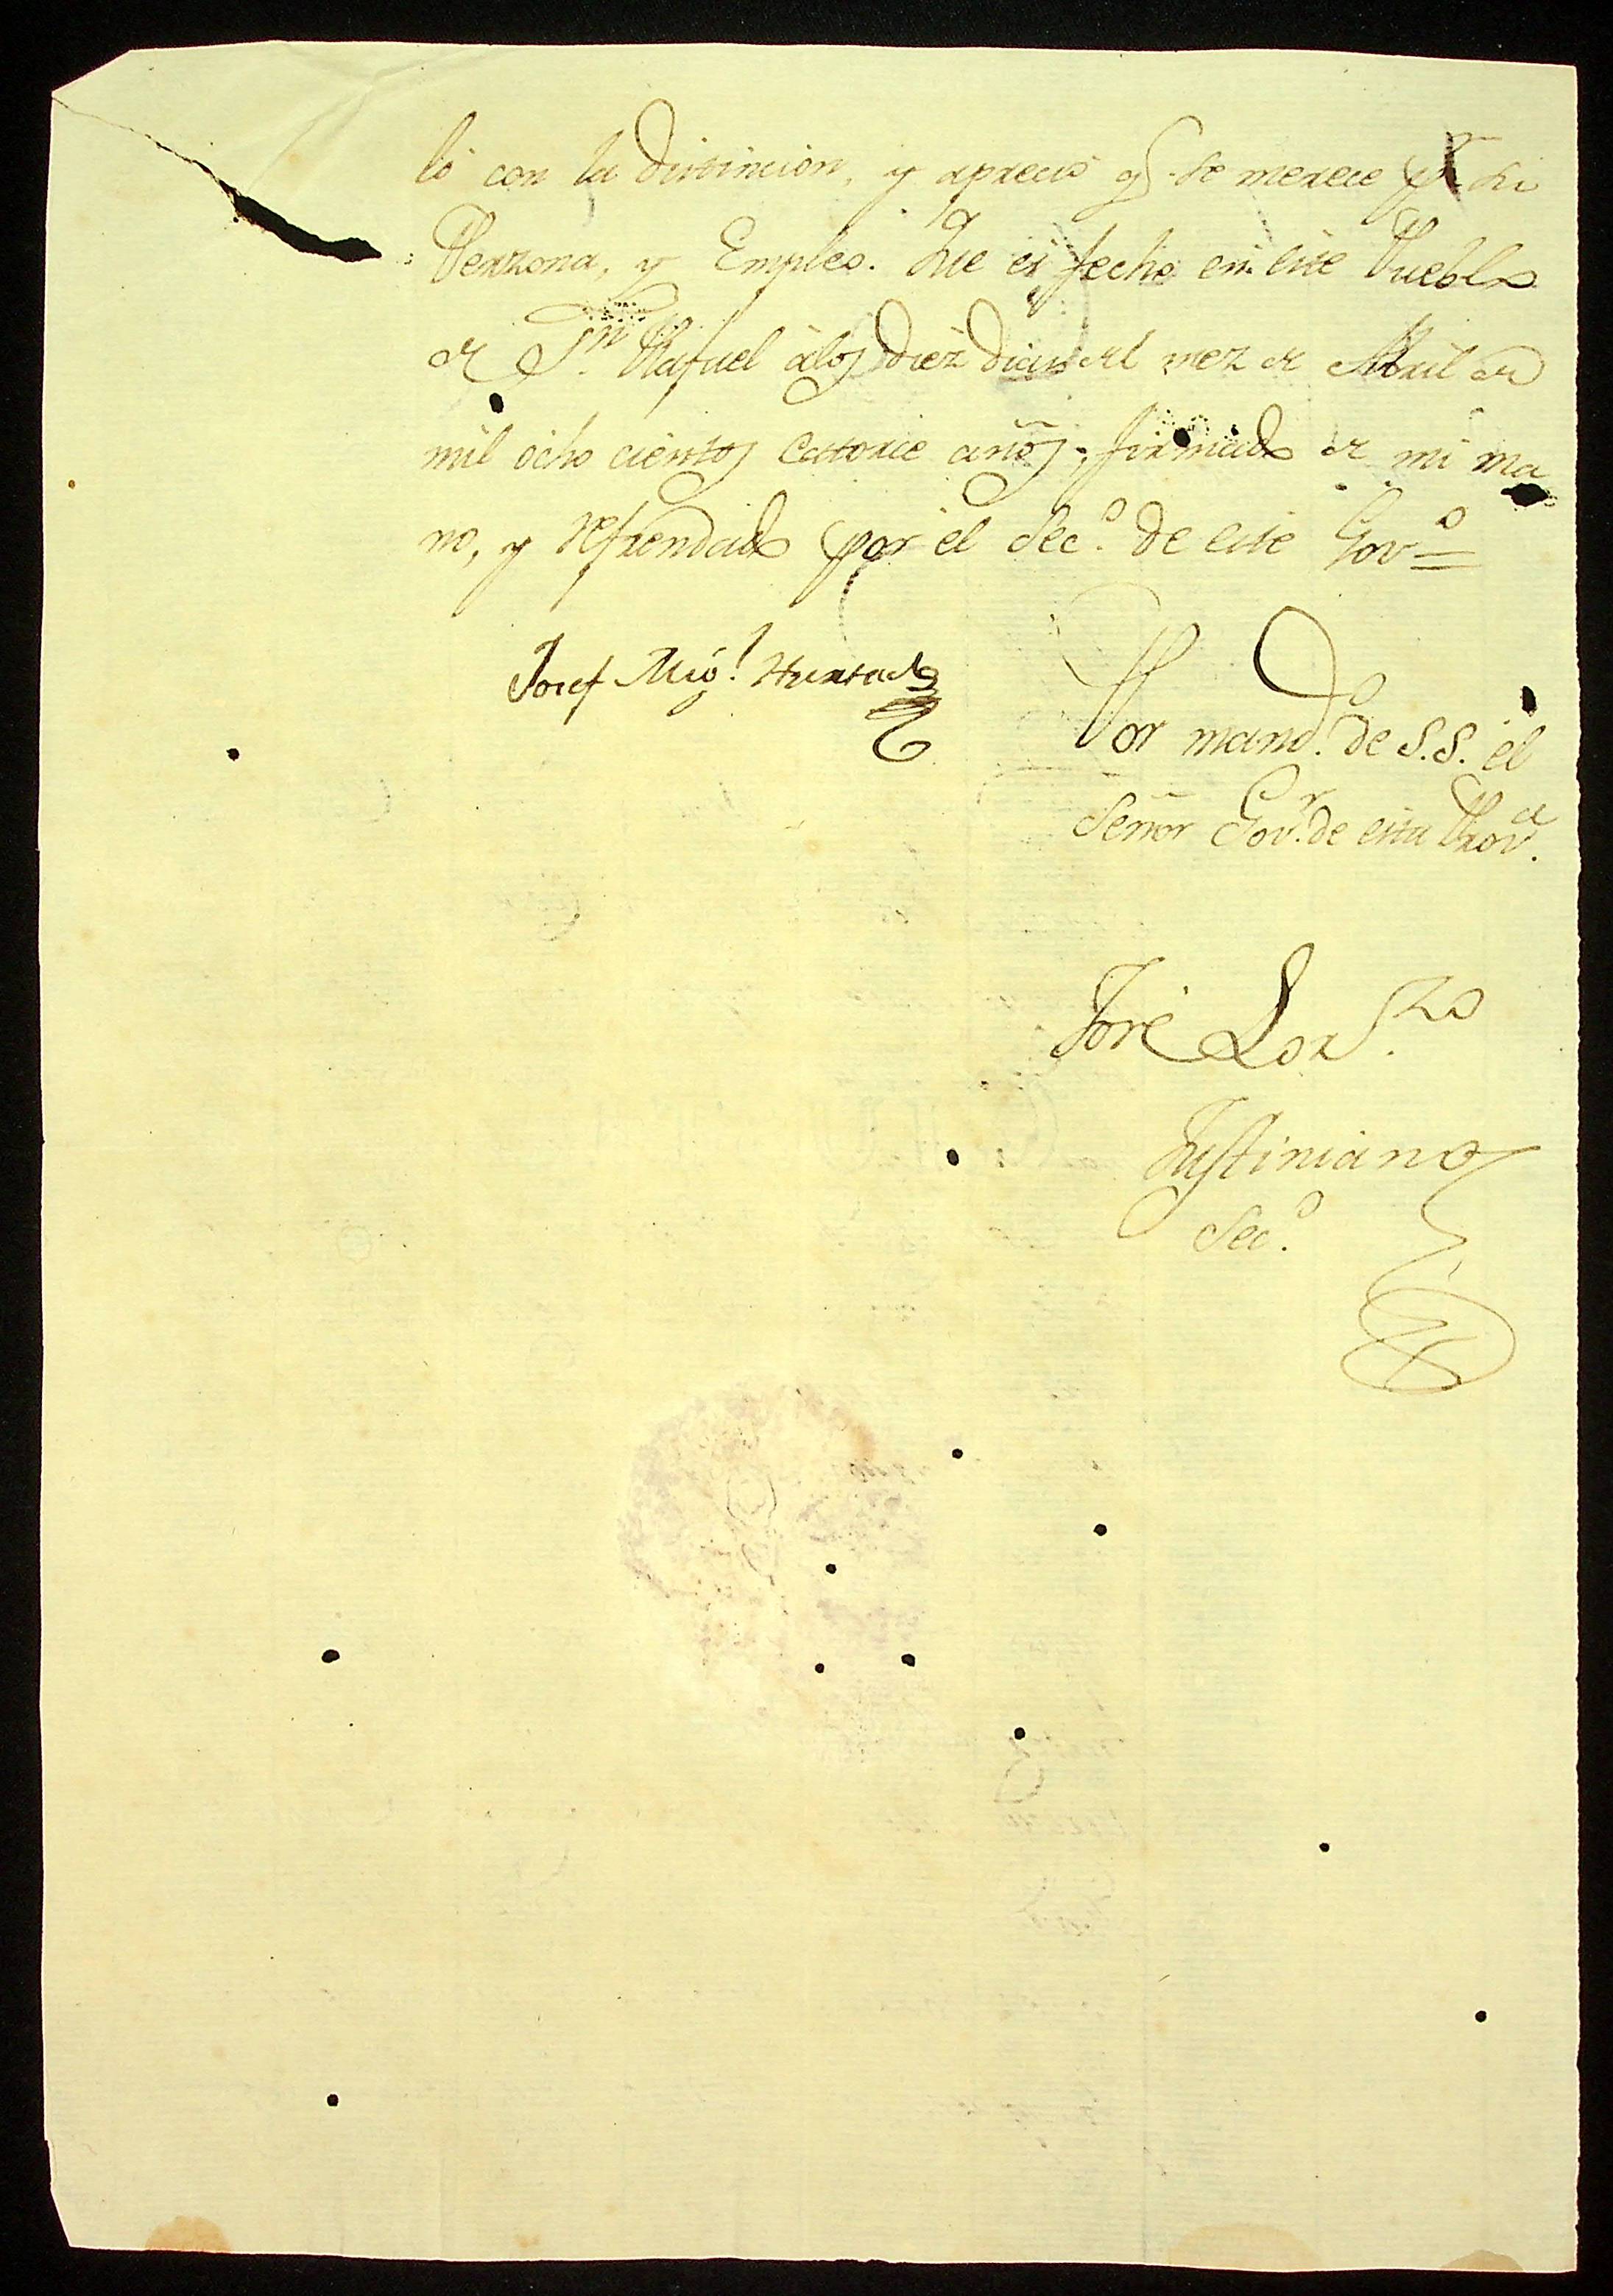 lo con la distincion, y aprecio q.e se merece p.r su
Perzona, y Empleo. Que es fecho en este Pueblo
de S.n Rafael à los diez dias del mez de Abril de
mil ocho cientos catorce años, firmado de mi ma
no, y refrendado por el Sec.o de este Gov.o
Josef Mig.l Hurtado
Por mand.o de S.S. el
Señor Gov.r de esta Prov.a
José Lor.zo
Justiniano
Sec.o